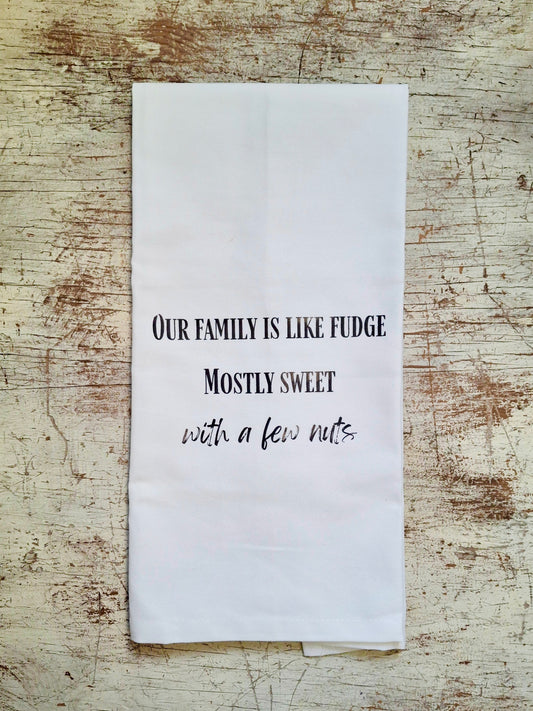 Our family is like fudge
Mostly sweet
with a few nuts